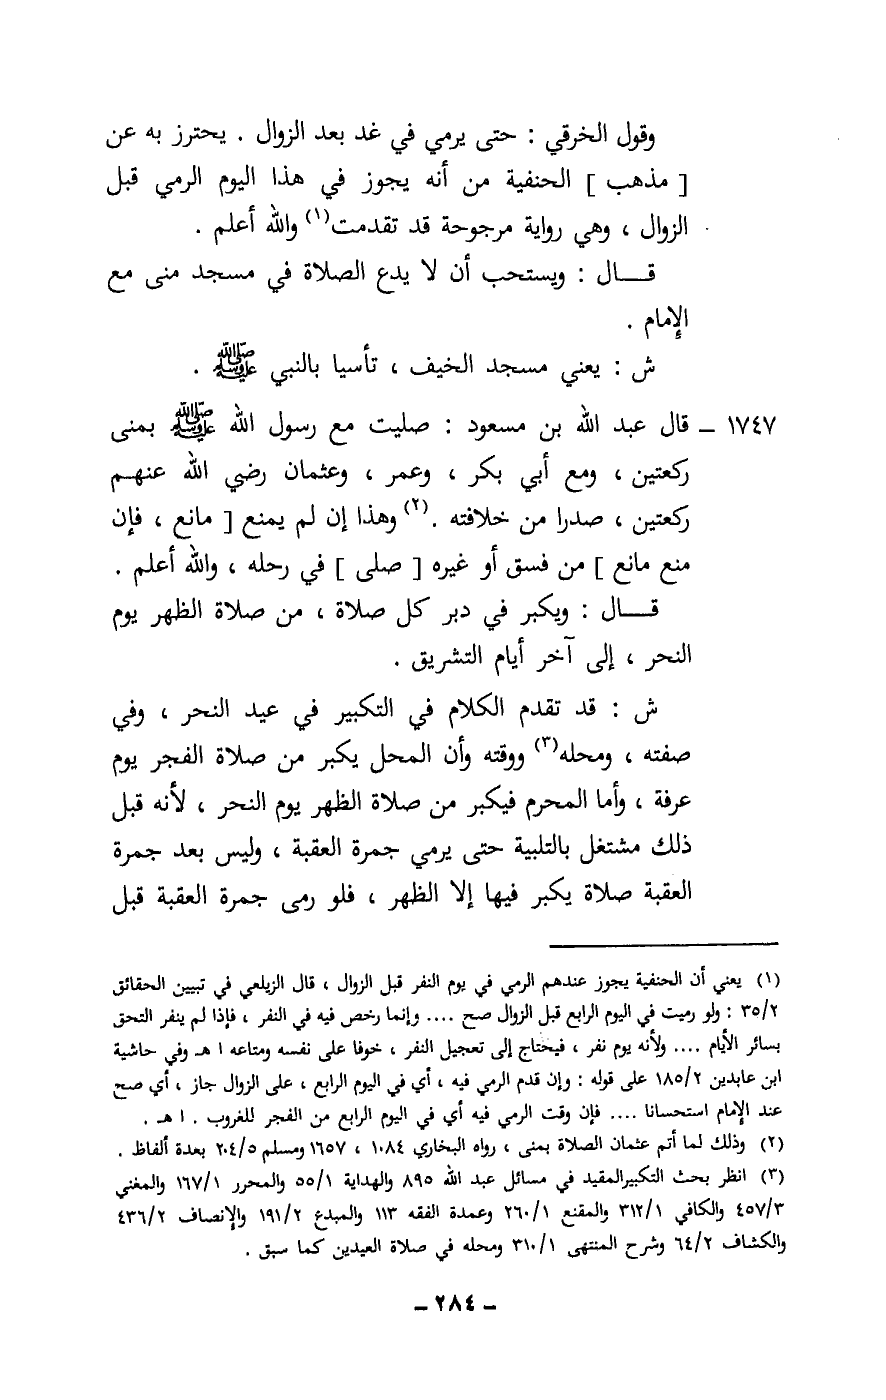 وقول الخرقي : حتى يرمي في غد بعد الزوال . يحترز به عن
[ مذهب ] الحنفية من أنه يجوز في هذا اليوم الرمي قبل
الزوال ، وهي رواية مرجوحة قد تقدمت(١) والله أعلم .
قــال : ويستحب أن لا يدع الصلاة في مسجد منى مع
الإمام .
ش : يعني مسجد الخيف ، تأسيا بالنبي ﷺ .
١٧٤٧ ـ قال عبد الله بن مسعود : صليت مع رسول الله ﷺ بمنى
ركعتين ، ومع أبي بكر ، وعمر ، وعثمان رضي الله عنهم
ركعتين ، صدرا من خلافته .(٢) وهذا إن لم يمنع [ مانع ، فإن
منع مانع ] من فسق أو غيره [ صلى ] في رحله ، والله أعلم .
قــال : ويكبر في دبر كل صلاة ، من صلاة الظهر يوم
النحر ، إلى آخر أيام التشريق .
ش : قد تقدم الكلام في التكبير في عيد النحر ، وفي
صفته ، ومحله(٣) ووقته وأن المحل يكبر من صلاة الفجر يوم
عرفة ، وأما المحرم فيكبر من صلاة الظهر يوم النحر ، لأنه قبل
ذلك مشتغل بالتلبية حتى يرمي جمرة العقبة ، وليس بعد جمرة
العقبة صلاة يكبر فيها إلا الظهر ، فلو رمى جمرة العقبة قبل
(١) يعني أن الحنفية يجوز عندهم الرمي في يوم النفر قبل الزوال ، قال الزيلعي في تبيين الحقائق
٣٥/٢ : ولو رميت في اليوم الرابع قبل الزوال صح .... وإنما رخص فيه في النفر ، فإذا لم ينفر التحق
بسائر الأيام .... ولأنه يوم نفر ، فيحتاج إلى تعجيل النفر ، خوفا على نفسه ومتاعه ا هـ وفي حاشية
ابن عابدين ١٨٥/٢ على قوله : وإن قدم الرمي فيه ، أي في اليوم الرابع ، على الزوال جاز ، أي صح
عند الإمام استحسانا .... فإن وقت الرمي فيه أي في اليوم الرابع من الفجر للغروب . ا هـ .
(٢) وذلك لما أتم عثمان الصلاة بمنى ، رواه البخاري ١٠٨٤ ، ١٦٥٧ ومسلم ٢٠٤/٥ بعدة ألفاظ .
(٣) انظر بحث التكبيرالمقيد في مسائل عبد الله ٨٩٥ والهداية ٥٥/١ والمحرر ١٦٧/١ والمغني
٤٥٧/٣ والكافي ٣١٢/١ والمقنع ٢٦٠/١ وعمدة الفقه ١١٣ والمبدع ١٩١/٢ والإنصاف ٤٣٦/٢
والكشاف ٦٤/٢ وشرح المنتهى ٣١٠/١ ومحله في صلاة العيدين كما سبق .
ـ ٢٨٤ ـ